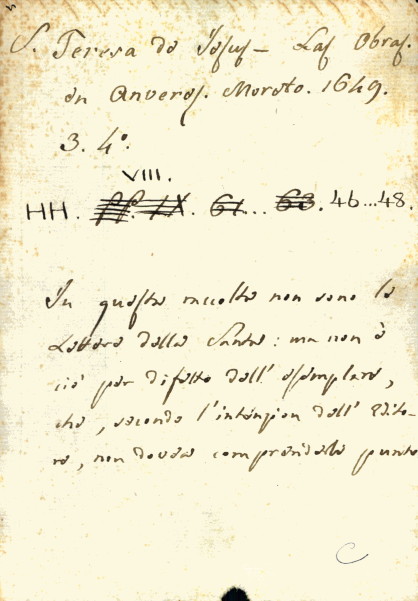 S. Teresa de Jesus — Las Obras.
en Anveres. Moreto. 1649.
3. 4°.
VIII.
HH. ff. IX. 61... 63. 46...48.
In questa raccolta non sono le
Lettere della Santa: ma non è
ciò per difetto dell' esemplare,
che, secondo l'intenzion dell' Edito-
re, non dovea comprenderle punto
C